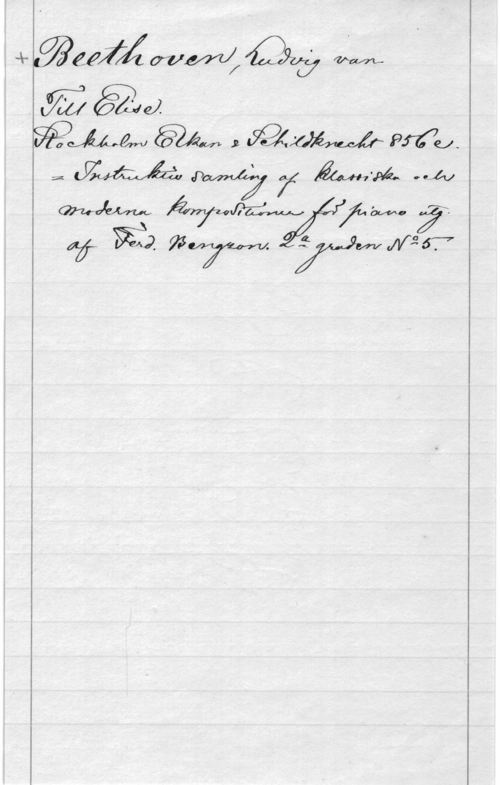 + Beethoven, Ludvig van
Till Elise.
Stockholm Elkan & Schildknecht 856 e.
= Instruktiv samling af klassiska och
moderna kompositioner för piano utg.
af Ferd. Bengzon. 2a graden No 5.